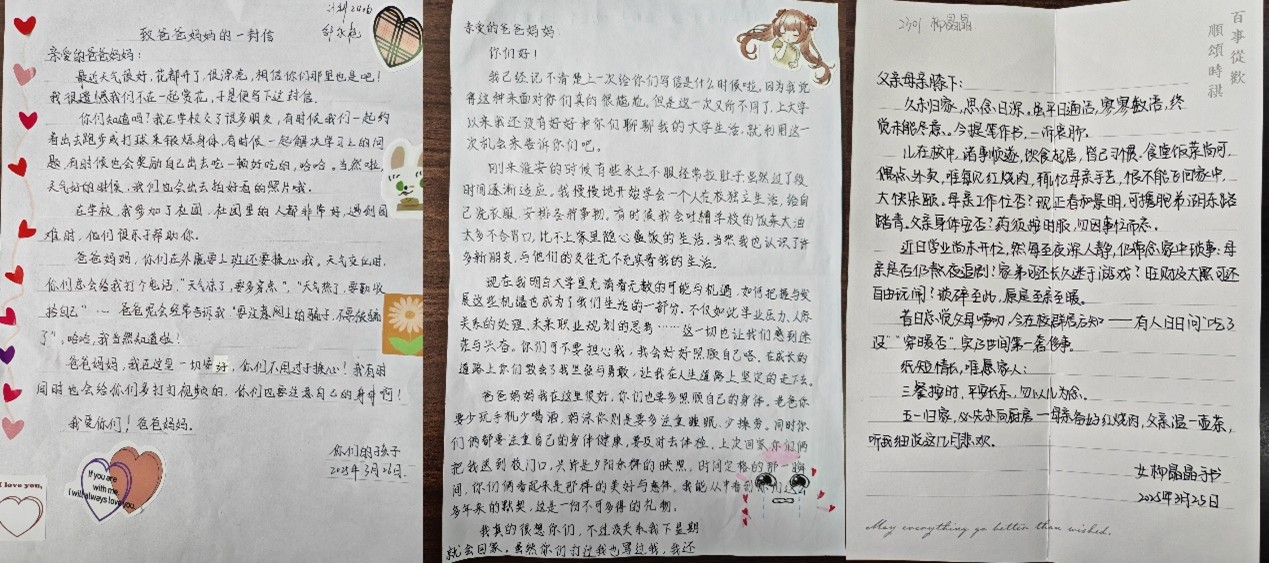 计科2406
邹永苑
致爸爸妈妈的一封信
亲爱的爸爸妈妈：
最近天气很好，花都开了，很漂亮，相信你们那里也是吧！
我很遗憾我们不在一起赏花，于是便写下这封信。
你们知道吗？我在学校交了很多朋友，有时候我们一起约
着出去跑步或打球来锻炼身体，有时候一起解决学习上的问
题，有时候也会奖励自己出去吃一顿好吃的，哈哈。当然啦，
天气好的时候，我们也会出去拍好看的照片哦。
在学校，我参加了社团，社团里的人都非常好，遇到困
难时，他们很乐于帮助你。
爸爸妈妈，你们在外既要上班还要操心我。天气变化时，
你们总会给我打个电话，“天气凉了，要多穿点”，“天气热了，要勤收
拾自己”…… 爸爸呢会经常告诉我“要注意网上的骗子，不要被骗
了”，哈哈，我当然知道啦！
爸爸妈妈，我在这里一切安好，你们不用过于操心！我有时
间时也会给你们多打打视频的，你们也要注意自己的身体啊！
我爱你们！爸爸妈妈。
你们的孩子
2025年3月26日
I love you,
If you are
with me,
I will always love you.
亲爱的爸爸妈妈：
你们好！
我已经记不清楚上一次给你们写信是什么时候啦，因为我觉
得这种来面对你们真的很尴尬，但是这一次又所不同了，上大学
以来我还没有好好和你们聊聊我的大学生活，就利用这一
次机会来告诉你们吧。
刚来淮安的时候有些水土不服经常拉肚子虽然过了段
时间逐渐适应。我慢慢地开始学会一个人在校独立生活，给自
己洗衣服、安排各种事物。有时候我会吐槽学校的饭菜太油
太多不合胃口，比不上家里随心做饭的生活。当然我也认识了许
多新朋友，与他们的交往无不充实着我的生活。
现在我明白大学里充满着无数的可能与机遇，如何把握与发
展这些机遇也成为了我们生活的一部分。不仅如此，学业压力、人际
关系的处理、未来职业规划的思考……这一切也让我们感到迷
茫与兴奋。你们可不要担心我，我会好好照顾自己哒。在成长的
道路上你们教会了我坚强与勇敢，让我在人生道路上坚定的走下去。
爸爸妈妈我在这里很好，你们也要多照顾自己的身体。老爸你
要少玩手机少喝酒，妈妈你则是要多注重睡眠、少操劳。同时你
们俩都要注重自己的身体健康，要及时去体检。上次回家你们俩
把我送到校门口，兴许是夕阳余辉的映照，时间定格的那一瞬
间，你们俩看起来是那样的美好与惠体。我能从中看到你们这么
多年来的默契，这是一份不可多得的礼物。
我真的很想你们，不过没关系我下星期
就会回家。虽然你们打过我也骂过我，我还
2301 柳晶晶
百事從歡
順頌時祺
父亲母亲膝下：
久未归家，思念日深。虽平日通话，寥寥数语，终
觉未能尽意。今提笔作书，一诉衷肠。
儿在校中，诸事顺遂，饮食起居，皆已习惯。食堂饭菜尚可，
偶点外卖，唯每见红烧肉，辄忆母亲手艺，恨不能飞回家中，
大快朵颐。母亲工作忙否？现正春和景明，可携胞弟湖东路
踏青。父亲身体安否？药须按时服，勿因事忙而忘。
近日学业尚未开忙，然每至夜深人静，仍常念家中琐事：母
亲是否仍熬夜追剧？家弟可还长久迷于游戏？旺财及大黑可还
自由玩闹？琐碎至此，原是至亲至暖。
昔日总觉父母唠叨，今在校群居方知——有人日日问“吃了
没”“穿暖否”，实乃世间第一奢侈事。
纸短情长，唯愿家人：
三餐按时，平安长乐，勿以儿为念。
五一归家，必先赴向厨房——母亲备好红烧肉，父亲温一壶茶，
听我细说这几月悲欢。
女柳晶晶手书
2025年3月25日
May everything go better than wished.